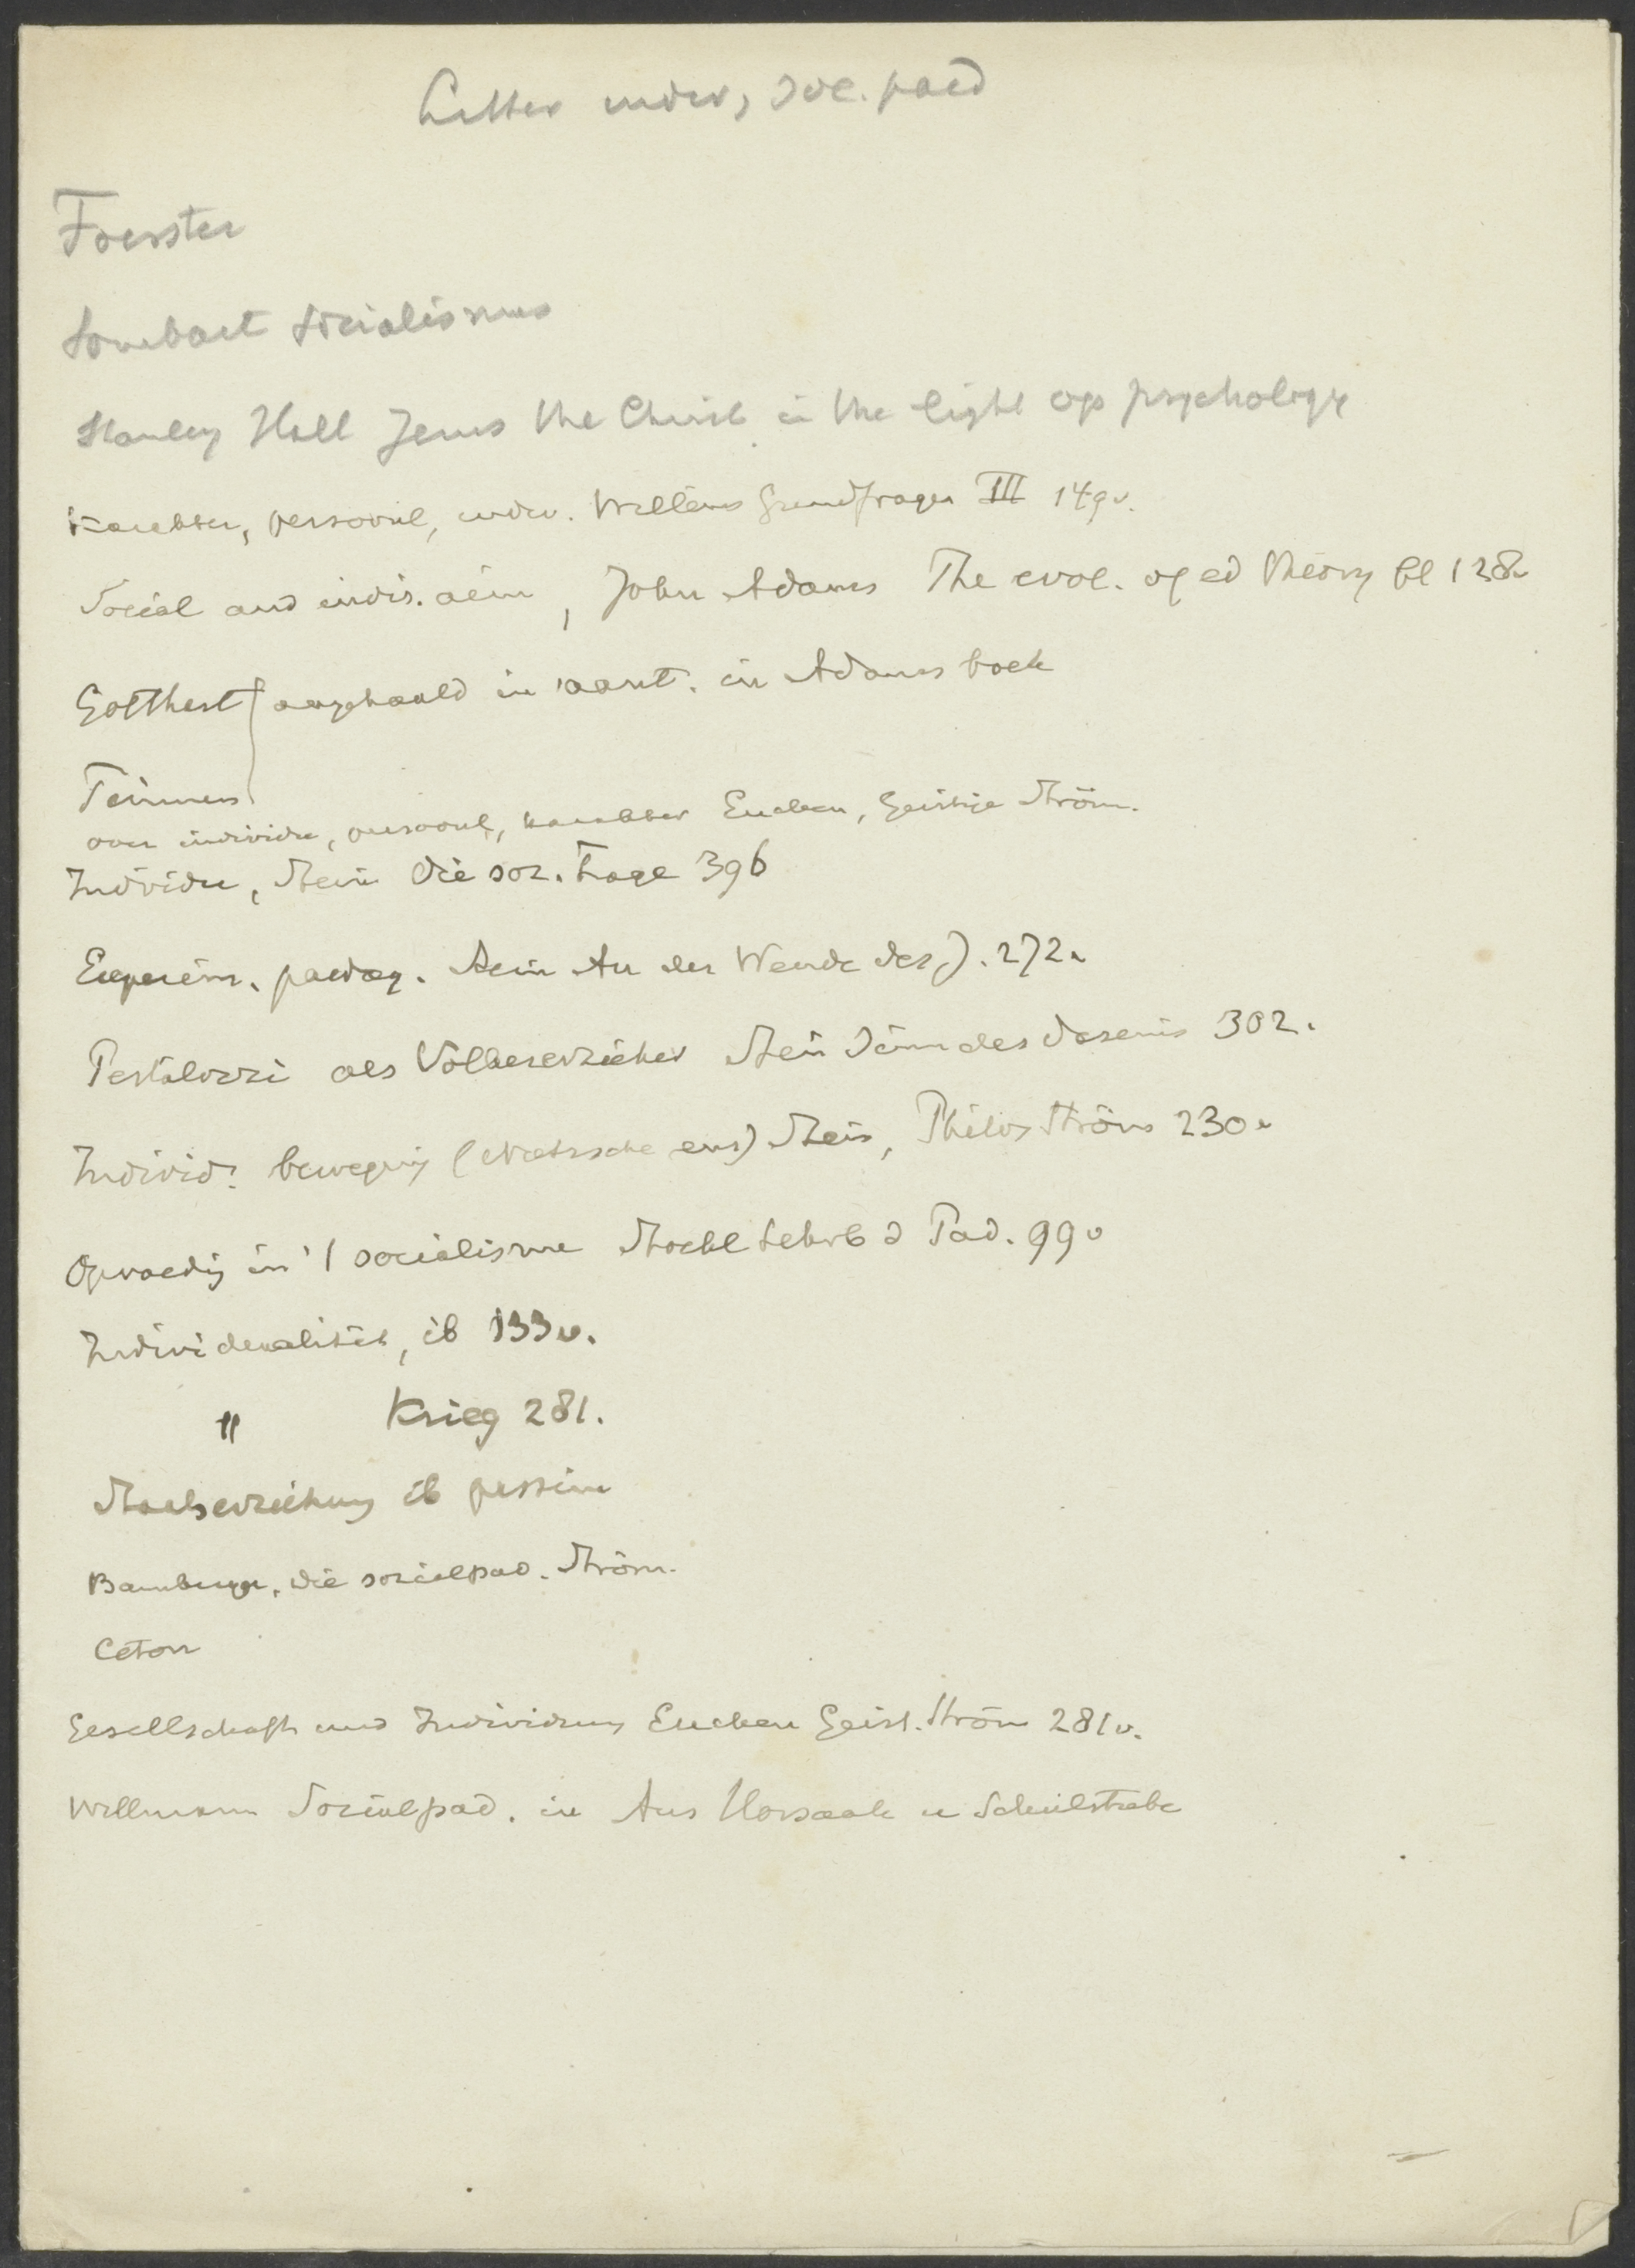 Litter indiv, soc. paed
Foerster
Sombart Socialismus
Stanley Hall Jesus the Christ in the light of psychology
Karakter, persoonl, indiv. Willems Grundfragen III 149v.
Social and indiv. aim, John Adams The evol. of ed theory bl 128v
Gotthert aangehaald in 'aant. in Adams boek
over individu, persoonl, karakter Eucken, Geistige Ström.
Individu, Stein Die soz. Frage 396
Experim. paedag. Stein An der Wende des J. 272v
Pestalozzi als Volkserzieher Stein Sinn des Daseins 302.
Individ. beweging (Nietzsche enz) Stein, Philos Ström 230v
Opvoedig in 't socialisme Stöckl Lehrb d Päd. 99v
Individualiteit, ib 133v.
" Krieg 281.
Staatserziehung ib passim
Bamberger, die sozialpäd. Ström.
Ceton
Gesellschaft und Individuum Eucken Geist. Ström 281v.
Willmann Sozialpäd. in Aus Hörsaal u Schulstube